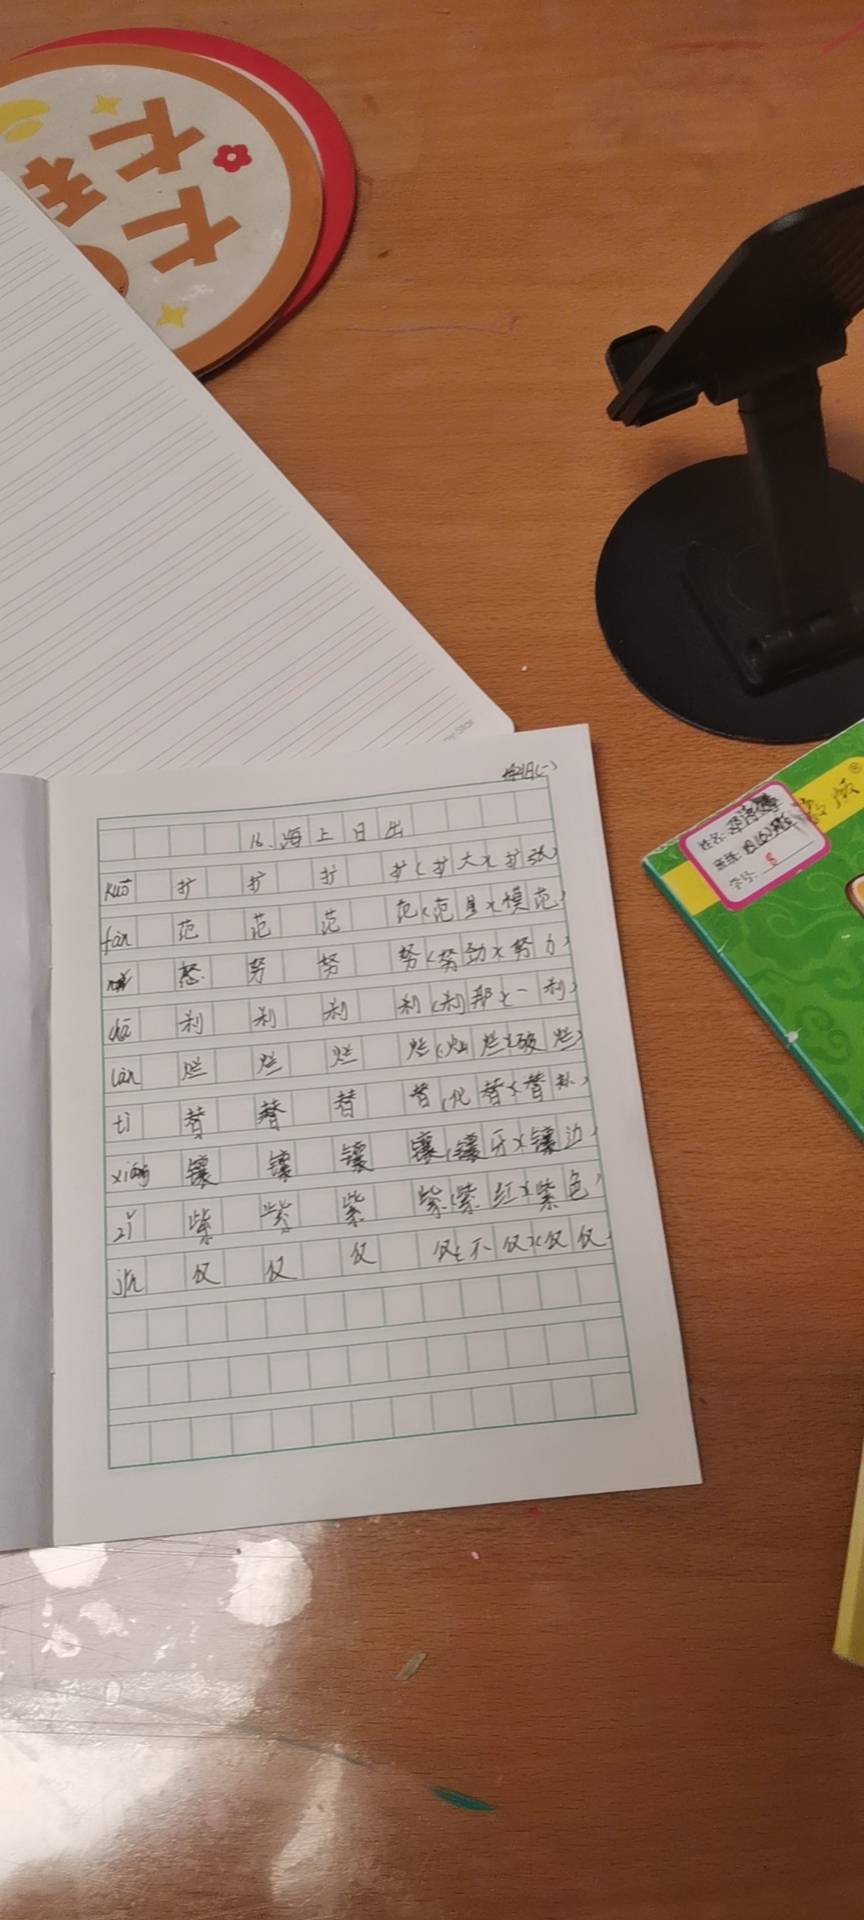 16.海上日出
kuò 扩 扩 扩 扩(扩大)(扩张)
fàn 范 范 范 范(范围)(模范)
努 努 努(努劲)(努力)
chà 刹 刹 刹 刹(刹那)(一刹)
làn 烂 烂 烂 烂(灿烂)(破烂)
tì 替 替 替 替(代替)(替补)
xiāng 镶 镶 镶 镶(镶牙)(镶边)
zǐ 紫 紫 紫 紫(紫红)(紫色)
jǐn 仅 仅 仅 仅(不仅)(仅仅)
姓名:
班级:
学号: 8